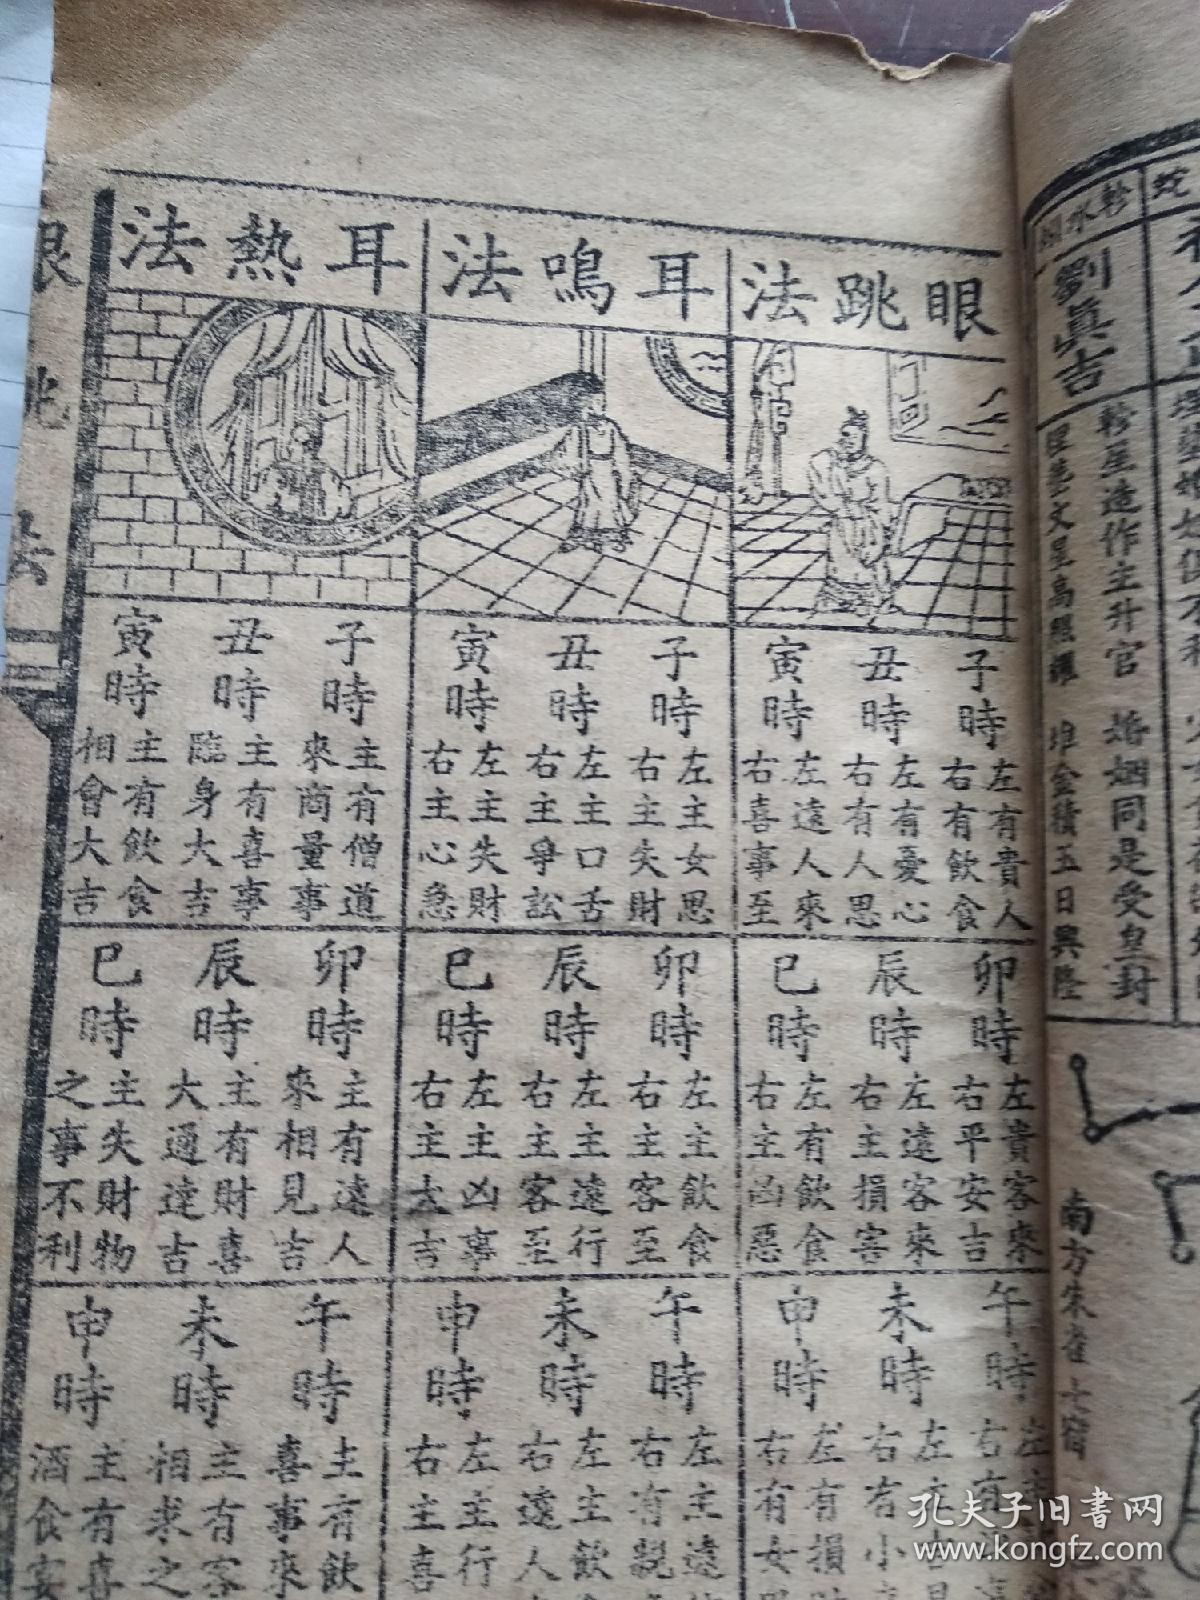 眼跳法
子時
左有貴人
右有飲食
丑時
左有憂心
右有人思
寅時
左遠人來
右喜事至
卯時
左貴客來
右平安吉
辰時
左遠客來
右主損害
巳時
左有飲食
右主凶惡
午時
未時
申時
左有損
右有女
耳鳴法
子時
左主女思
右主失財
丑時
左主口舌
右主爭訟
寅時
左主失財
右主心急
卯時
左主飲食
右主客至
辰時
左主遠行
右主客至
巳時
左主凶事
右主大吉
午時
左主遠
右有親
未時
左主飲
右遠人
申時
左主行
右主喜
耳熱法
子時
主有僧道
來商量事
丑時
主有喜事
臨身大吉
寅時
主有飲食
相會大吉
卯時
主有遠人
來相見吉
辰時
主有財喜
大通達吉
巳時
主失財物
之事不利
午時
主有飲
喜事來
未時
主有客
相求之
申時
主有喜
酒食宴
軫水蚓
劉真吉
軫星造作主升官 婚姻同是受皇封
文星高照耀 堆金積玉日興隆
南方朱雀七宿
孔夫子旧书网
www.kongfz.com